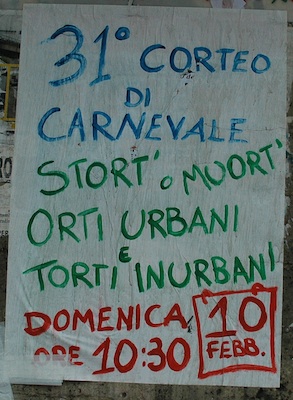 31° CORTEO
DI
CARNEVALE
STORT' o MUORT'
ORTI URBANI
E
TORTI INURBANI
DOMENICA 10
ORE 10:30 FEBB.